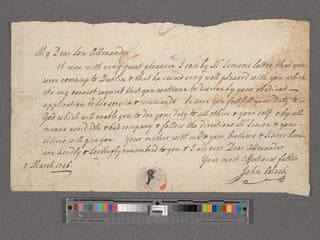 My Dear Son Allexander
it was with very great pleasure I saw by Mr Simons Letter that you
were come up to Dublin & that he seems very well pleased with you which
its my earnest request that you continue to deserve by your obedient
application to his service & commands be sure you fullfill your Duty to
God which will enable you to doe your duty to all others & your self & by all
means avoid idle & bad company & follow the directions Mr Simon & your
will give you Your mother with me & your brothers & Sisters here
are kindly & lovingly remembred to you & I am ever Dear Allexander
Your most affectionat father
7 March
John Black